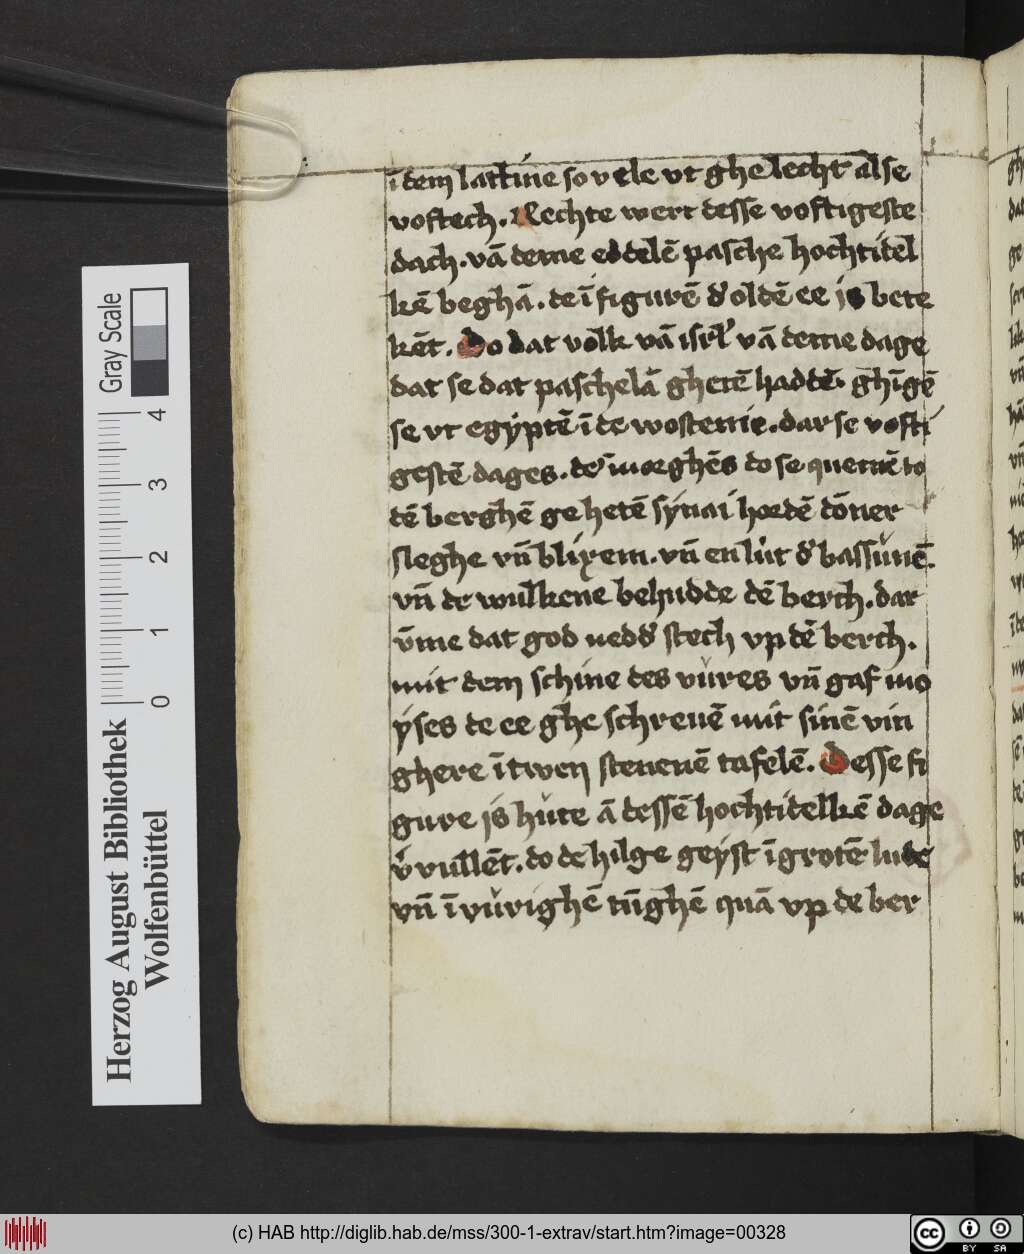 ī dem lattine so vele vt ghelecht alse
voftech. Rechte wert desse voftigeste
dach. vā deme eddelē pasche hochtidel
kē beghā. de ī figurē d' oldē ee is bete
kēt. Do dat volk vā isrl' vā deme dage
dat se dat paschelā ghetē haddē. ghīgē
se vt egyptē ī de wostenie. dar se vofti
gestē dages. des morghēs do se quemē to
dē berghē ge hetē synai hordē dōner
sleghe vn̄ blixem. vn̄ en lut d' bassunē.
vn̄ de wulkene behudde dē berch. dar
v̄me dat god nedd' stech vp dē berch.
mit dem schine des vures vn̄ gaf mo
yses de ee ghe schreuē mit sinē vin
ghere ī twen stenenē tafelē. Desse fi
gure is hute ā dessē hochtidelkē dage
v'vullēt. do de hilge geyst ī grotē lude
vn̄ ī vurighē tūghē quā vp de ber
Gray Scale
0 1 2 3 4
Herzog August Bibliothek
Wolfenbüttel
(c) HAB http://diglib.hab.de/mss/300-1-extrav/start.htm?image=00328
cc BY SA